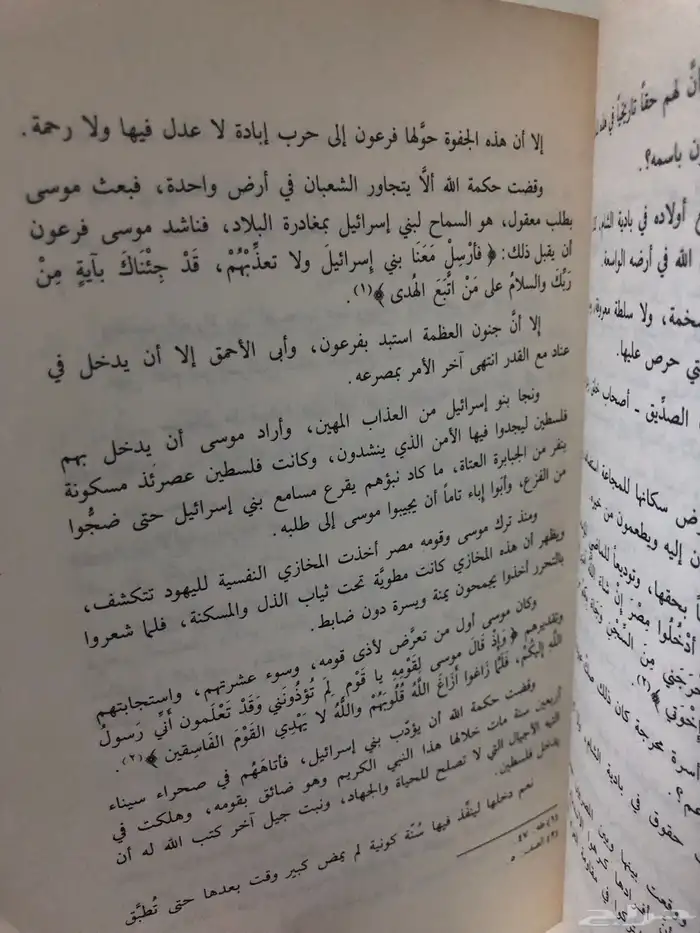 إلا أن هذه الجفوة حوَّلها فرعون إلى حرب إبادة لا عدل فيها ولا رحمة.
وقضت حكمة الله ألاَّ يتجاور الشعبان في أرض واحدة، فبعث موسى
بطلب معقول، هو السماح لبني إسرائيل بمغادرة البلاد، فناشد موسى فرعون
أن يقبل ذلك: ﴿ فَأَرْسِلْ مَعَنَا بني إِسرائيلَ ولا تعذِّبْهُمْ، قَدْ جِئْنَاكَ بآيةٍ مِنْ
رَبِّكَ والسلامُ على مَنْ اتَّبَعَ الهُدى ﴾(١).
إلا أنَّ جنون العظمة استبد بفرعون، وأبى الأحمق إلا أن يدخل في
عناد مع القدر انتهى آخر الأمر بمصرعه.
ونجا بنو إسرائيل من العذاب المهين، وأراد موسى أن يدخل بهم
فلسطين ليجدوا فيها الأمن الذي ينشدون، وكانت فلسطين عصرئذ مسكونة
بنفر من الجبابرة العتاة، ما كاد نبؤهم يقرع مسامع بني إسرائيل حتى ضجُّوا
من الفزع، وأبَوا إباء تاماً أن يجيبوا موسى إلى طلبه.
ومنذ ترك موسى وقومه مصر أخذت المخازي النفسية لليهود تتكشف،
ويظهر أن هذه المخازي كانت مطويَّة تحت ثياب الذل والمسكنة، فلما شعروا
بالتحرر أخذوا يجمحون يمنة ويسرة دون ضابط.
وكان موسى أول من تعرَّض لأذى قومه، وسوء عشرتهم، واستجابتهم
وتقديرهم ﴿ وَإِذْ قَالَ موسى لِقَوْمِهِ يا قَوْمِ لِمَ تُؤْذُونَني وَقَدْ تَعْلَمون أَنِّي رَسولُ
اللَّهِ إليكُمْ، فَلَمَّا زَاغوا أَزَاغَ اللَّهُ قُلُوبَهُمْ واللَّهُ لا يَهْدِي القَوْمَ الفَاسِقين ﴾(٢).
وقضت حكمة الله أن يؤدّب بني إسرائيل، فأتاهَهُم في صحراء سيناء
أربعين سنة مات خلالها هذا النبي الكريم وهو ضائق بقومه، وهلكت في
التيه الأجيال التي لا تصلح للحياة والجهاد، ونبت جيل آخر كتب الله له أن
يدخل فلسطين.
نعم دخلها لينفِّذ فيها سُنّة كونية لم يمض كبير وقت بعدها حتى تُطبَّق
(١) طه: ٤٧.
(٢) الصف: ٥
أنَّ لهم حقاً تاريخياً في
باسمه؟.
أولاده في بادية الشام،
الله في أرضه الواسعة.
ولا سلطة
تي حرص عليها.
الصدِّيق ـ أصحاب
سكانها للمجاعة
إليه ويطعمون من
بحقها،
أدْخُلُوا مِصْرَ إِنْ شَاءَ اللَّهُ
مِنَ السِّجْنِ
إخْوَتي ﴾(٢).
محرجة كان ذلك
حقوق في بادية الشام،